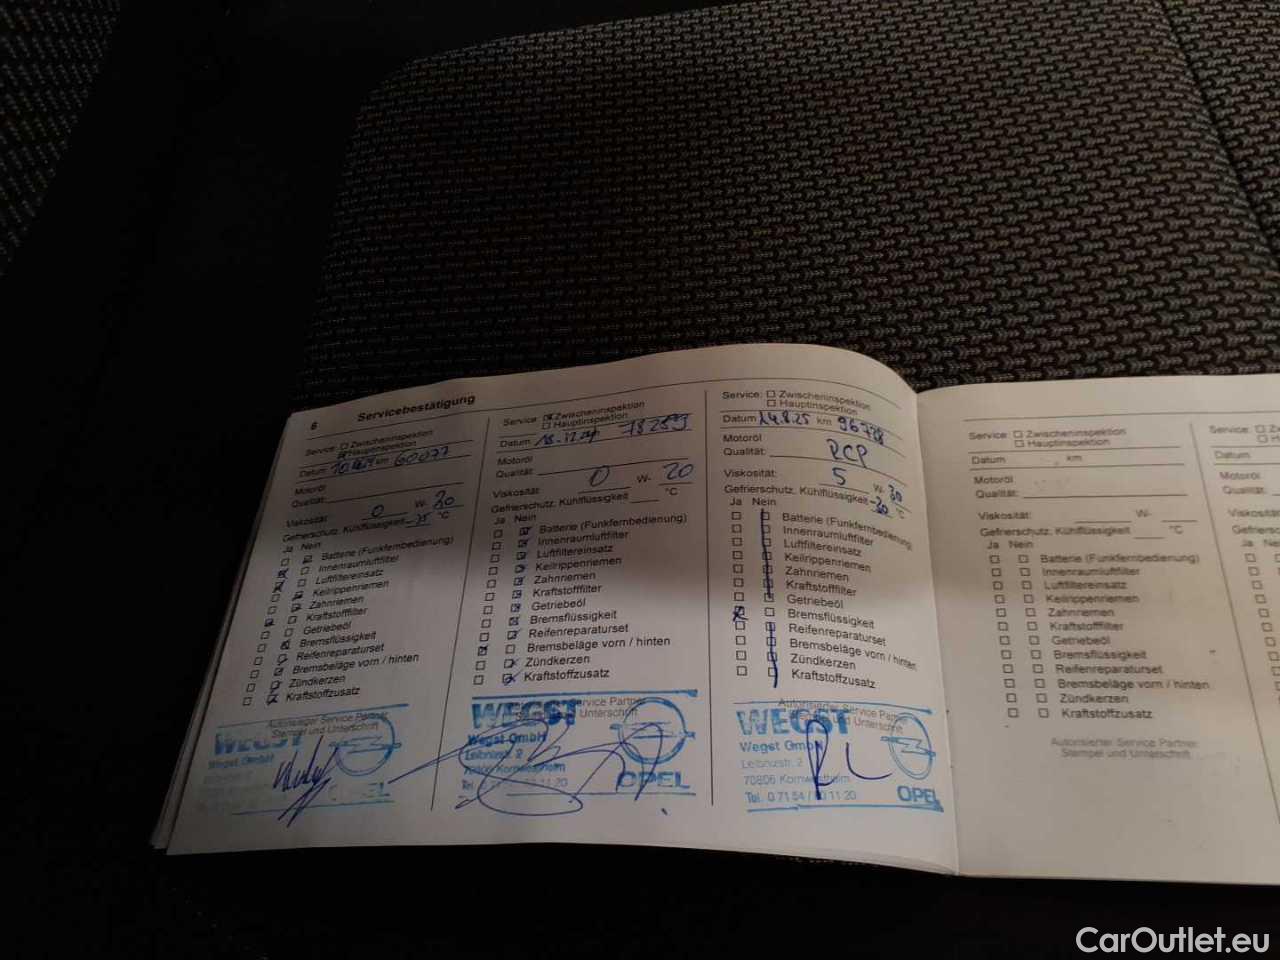 6 Servicebestätigung
Service: Zwischeninspektion
Hauptinspektion
Datum km 60077
Motoröl
Qualität:
Viskosität: 0 W- 20
Gefrierschutz. Kühlflüssigkeit °C
Ja Nein
Batterie (Funkfernbedienung)
Innenraumluftfilter
Luftfiltereinsatz
Keilrippenriemen
Zahnriemen
Kraftstofffilter
Getriebeöl
Bremsflüssigkeit
Reifenreparaturset
Bremsbeläge vorn / hinten
Zündkerzen
Kraftstoffzusatz
Autorisierter Service Partner
Stempel und Unterschrift
WEGST
Wegst GmbH
OPEL
Service: Zwischeninspektion
Hauptinspektion
Datum 78259
Motoröl
Qualität:
Viskosität: 0 W- 20
Gefrierschutz. Kühlflüssigkeit °C
Ja Nein
Batterie (Funkfernbedienung)
Innenraumluftfilter
Luftfiltereinsatz
Keilrippenriemen
Zahnriemen
Kraftstofffilter
Getriebeöl
Bremsflüssigkeit
Reifenreparaturset
Bremsbeläge vorn / hinten
Zündkerzen
Kraftstoffzusatz
Service Partner
Unterschrift
WEGST
Wegst GmbH
Leibnizstr. 2
Kornwestheim
11 20
OPEL
Service: Zwischeninspektion
Hauptinspektion
Datum 14.8.25 km 96778
Motoröl
Qualität:
Viskosität: 5 W- 30
Gefrierschutz. Kühlflüssigkeit -30 °C
Ja Nein
Batterie (Funkfernbedienung)
Innenraumluftfilter
Luftfiltereinsatz
Keilrippenriemen
Zahnriemen
Kraftstofffilter
Getriebeöl
Bremsflüssigkeit
Reifenreparaturset
Bremsbeläge vorn / hinten
Zündkerzen
Kraftstoffzusatz
Autorisierter Service Partner
Stempel und Unterschrift
WEGST
Wegst GmbH
Leibnizstr. 2
70806 Kornwestheim
Tel. 0 71 54 / 11 20
OPEL
Service: Zwischeninspektion
Hauptinspektion
Datum km
Motoröl
Qualität:
Viskosität: W-
Gefrierschutz. Kühlflüssigkeit °C
Ja Nein
Batterie (Funkfernbedienung)
Innenraumluftfilter
Luftfiltereinsatz
Keilrippenriemen
Zahnriemen
Kraftstofffilter
Getriebeöl
Bremsflüssigkeit
Reifenreparaturset
Bremsbeläge vorn / hinten
Zündkerzen
Kraftstoffzusatz
Autorisierter Service Partner
Stempel und Unterschrift
Service:
Datum
Motoröl
Qualität:
Viskosität:
Ja
CarOutlet.eu